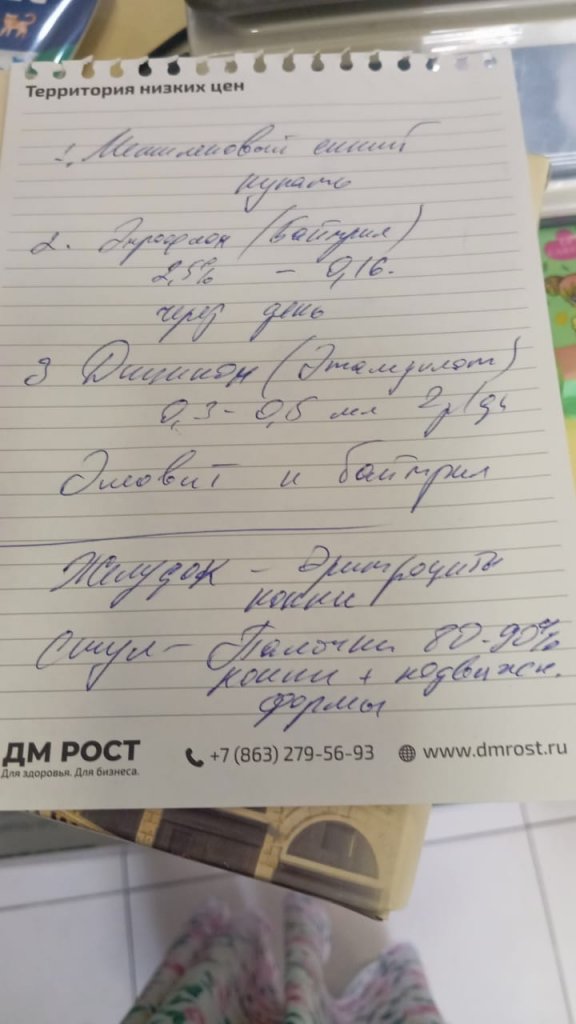 Территория низких цен
1. Метиленовый синий
купать
2. Энрофлон (Байтрил)
2,5% - 0,16.
через день
3 Дицинон (Этамзилат)
0,3 - 0,5 мл 2р/дн
Эловит и байтрил
Желудок - Эритроциты
кокки
Стул - Палочки 80-90%
кокки + подвижн.
формы
ДМ РОСТ
Для здоровья. Для бизнеса.
+7 (863) 279-56-93
www.dmrost.ru